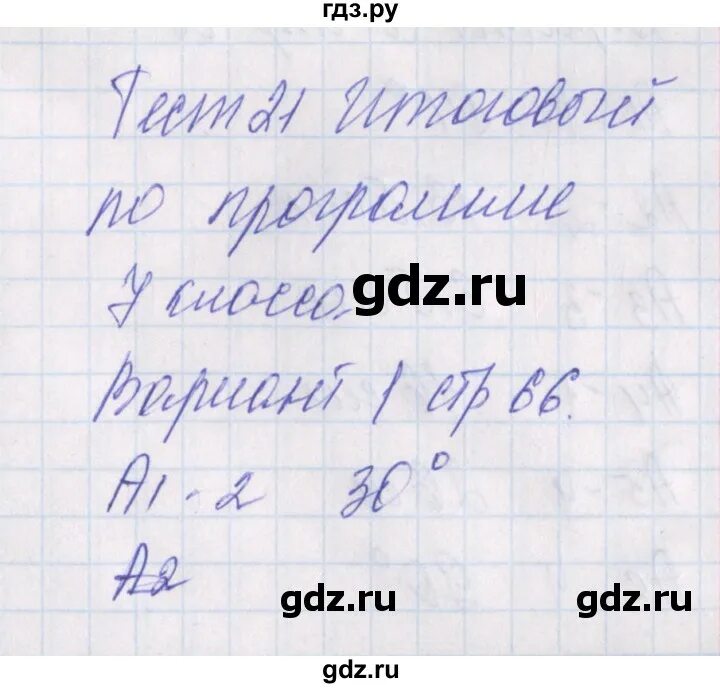 гдз.ру
Тест 21 Итоговый
по программе
7 класса.
gdz.ru
Вариант 1 стр 66.
А1 - 2 30°
А2
gdz.ru gdz.ru
gdz.ru